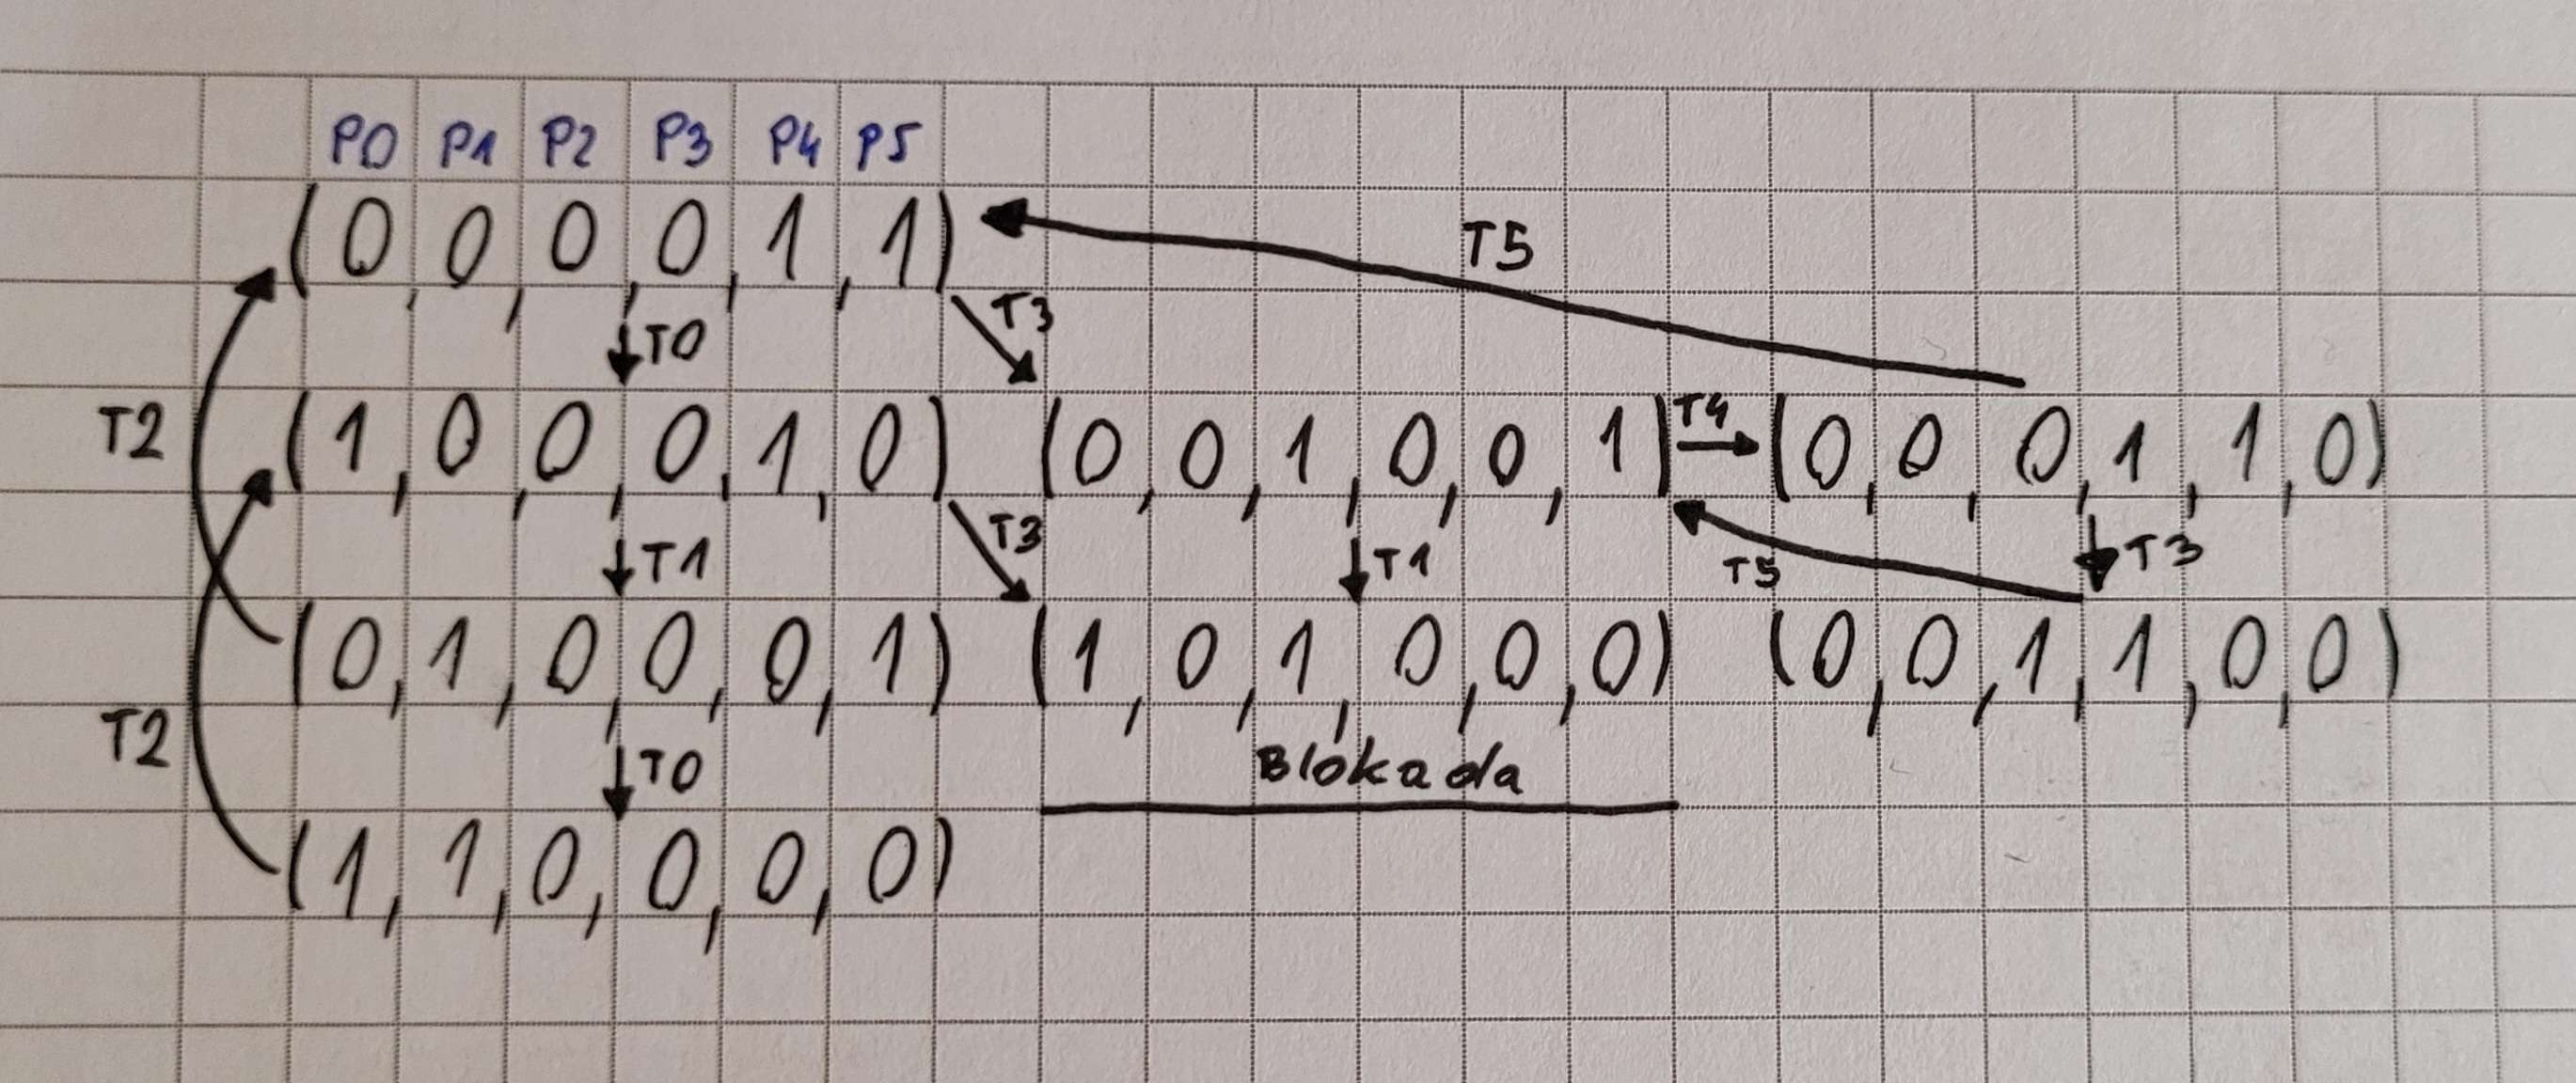 P0 P1 P2 P3 P4 P5
(0 0, 0, 0, 1, 1)
T5
T0 T3
T2 (1, 0, 0, 0, 1, 0) (0 0, 1, 0, 0, 1) T4 (0 0, 0, 1, 1, 0)
T1 T3 T1 T5 T3
(0, 1, 0, 0, 0, 1) (1, 0, 1, 0, 0, 0) (0, 0, 1, 1, 0, 0)
T2 T0 Blokada
(1, 1, 0, 0, 0, 0)